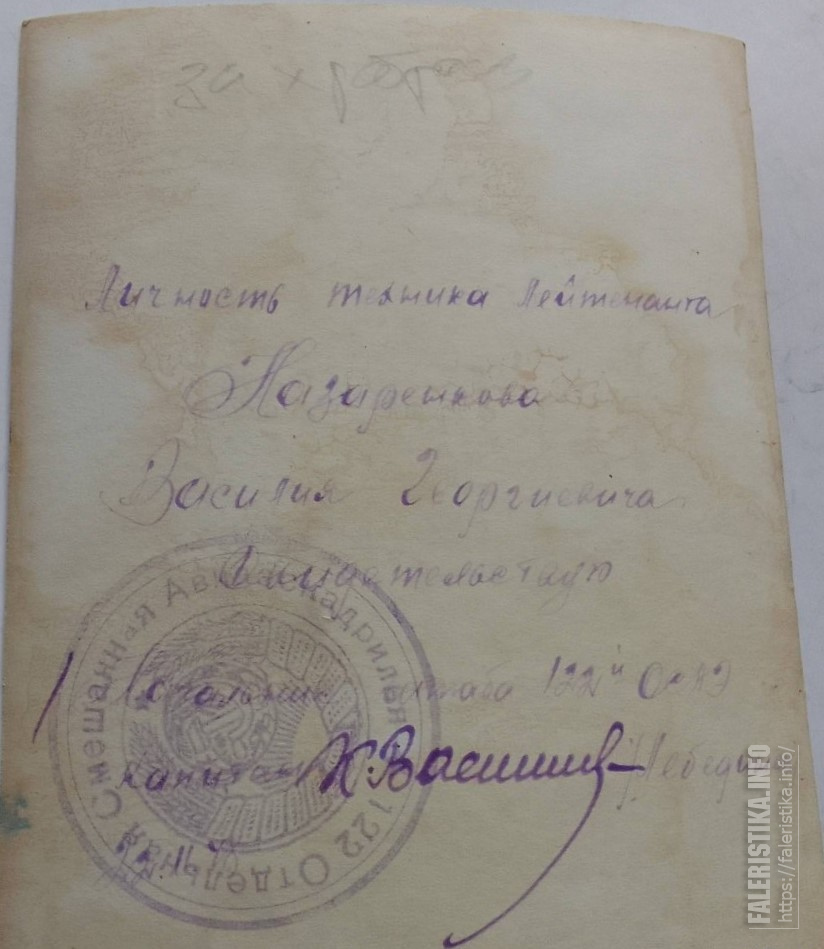 за храбрость
Личность техника Лейтенанта
Назаренкова
Василия Георгиевича
Свидетельствую
Начальник штаба 122й ОСАЭ
капитан К.Василев
122 Отдельная Смешанная Авиаэскадрилья
FALERISTIKA.INFO
https://faleristika.info/